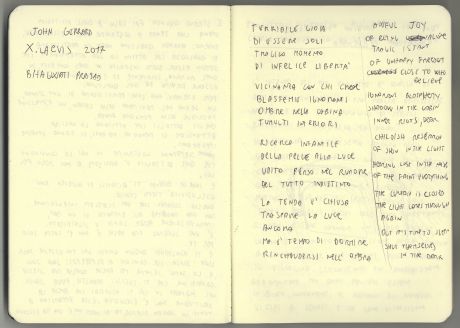 JOHN GERRARD
X. LAEVIS 2017
TERRIBILE GIOIA
DI ESSERE SOLI
TRAGICO MOMENTO
DI INFELICE LIBERTA'
VICINANZA CON CHI CREDE
BLASFEMIE IGNORANTI
OMBRE NELLA CABINA
TUMULTI INTERIORI
RICERCA INFANTILE
DELLA PELLE ALLA LUCE
UDITO PERSO NEL RUMORE
DEL TUTTO INDISTINTO
LA TENDA E' CHIUSA
TRASPARE LA LUCE
ANCORA
MA E' TEMPO DI DORMIRE
RINCHIUDERSI NELL'OMBRA
AWFUL JOY
OF BEING ALONE
TRAGIC INSTANT
OF UNHAPPY FREEDOM
CLOSE TO WHO
BELIEVE
IGNORANT BLASPHEMY
SHADOW IN THE CABIN
INNER RIOTS
CHILDISH RESEARCH
OF SKIN IN THE LIGHT
HEARING LOST IN THE NOISE
OF THE FAINT EVERYTHING
THE CURTAIN IS CLOSED
THE LIGHT COMES THROUGH
AGAIN
BUT IT'S TIME TO SLEEP
SHUT THEMSELVES
IN THE DARK